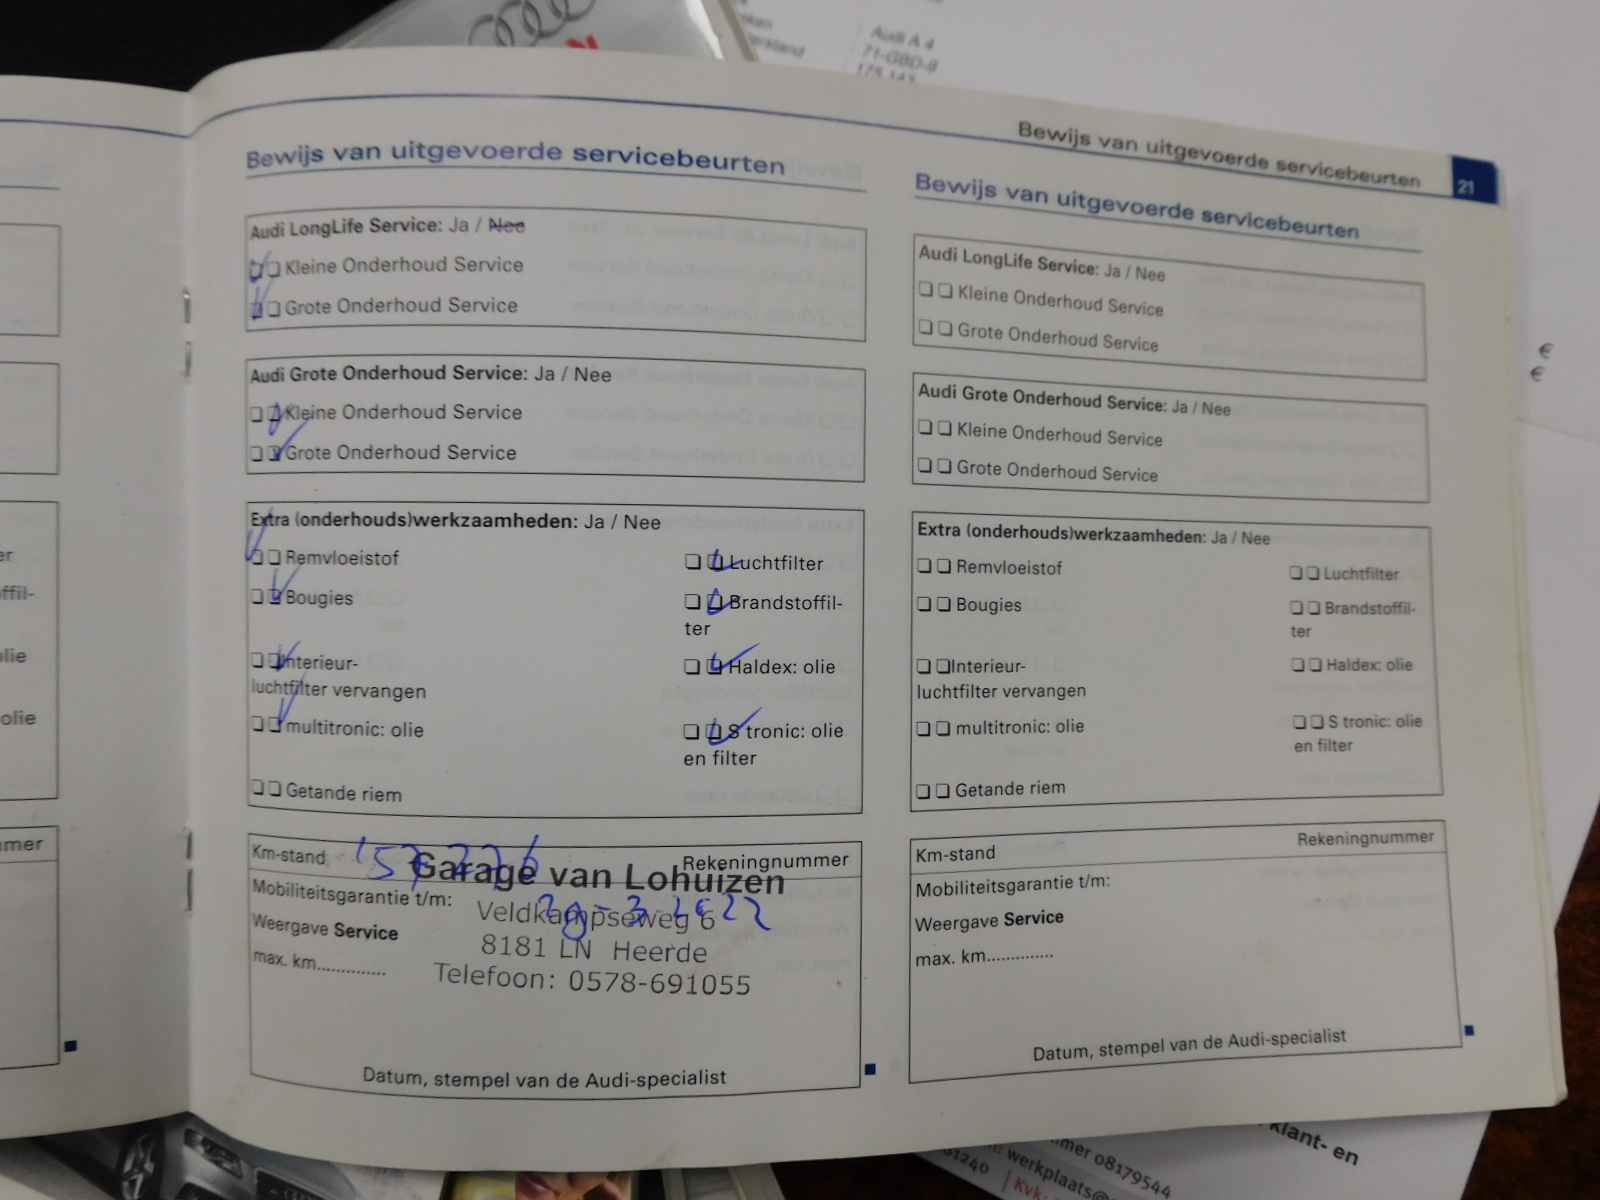 Audi A 4
71-GBD-9
175 143
Bewijs van uitgevoerde servicebeurten 21
Bewijs van uitgevoerde servicebeurten
Audi LongLife Service: Ja / Nee
❏ ❏ Kleine Onderhoud Service
❏ ❏ Grote Onderhoud Service
Audi Grote Onderhoud Service: Ja / Nee
❏ ❏ Kleine Onderhoud Service
❏ ❏ Grote Onderhoud Service
Extra (onderhouds)werkzaamheden: Ja / Nee
❏ ❏ Remvloeistof
❏ ❏ Luchtfilter
❏ ❏ Bougies
❏ ❏ Brandstoffil-
ter
❏ ❏ Interieur-
luchtfilter vervangen
❏ ❏ Haldex: olie
❏ ❏ multitronic: olie
❏ ❏ S tronic: olie
en filter
❏ ❏ Getande riem
Km-stand 157 226 Rekeningnummer
Garage van Lohuizen
Mobiliteitsgarantie t/m:
Veldkampseweg 6
Weergave Service
8181 LN Heerde
max. km.............
Telefoon: 0578-691055
Datum, stempel van de Audi-specialist
Bewijs van uitgevoerde servicebeurten
Audi LongLife Service: Ja / Nee
❏ ❏ Kleine Onderhoud Service
❏ ❏ Grote Onderhoud Service
Audi Grote Onderhoud Service: Ja / Nee
❏ ❏ Kleine Onderhoud Service
❏ ❏ Grote Onderhoud Service
Extra (onderhouds)werkzaamheden: Ja / Nee
❏ ❏ Remvloeistof
❏ ❏ Luchtfilter
❏ ❏ Bougies
❏ ❏ Brandstoffil-
ter
❏ ❏ Interieur-
luchtfilter vervangen
❏ ❏ Haldex: olie
❏ ❏ multitronic: olie
❏ ❏ S tronic: olie
en filter
❏ ❏ Getande riem
Km-stand Rekeningnummer
Mobiliteitsgarantie t/m:
Weergave Service
max. km.............
Datum, stempel van de Audi-specialist
€
€
olie
olie
klant- en
mmer 08179544
werkplaats@
61240 | Kvk: